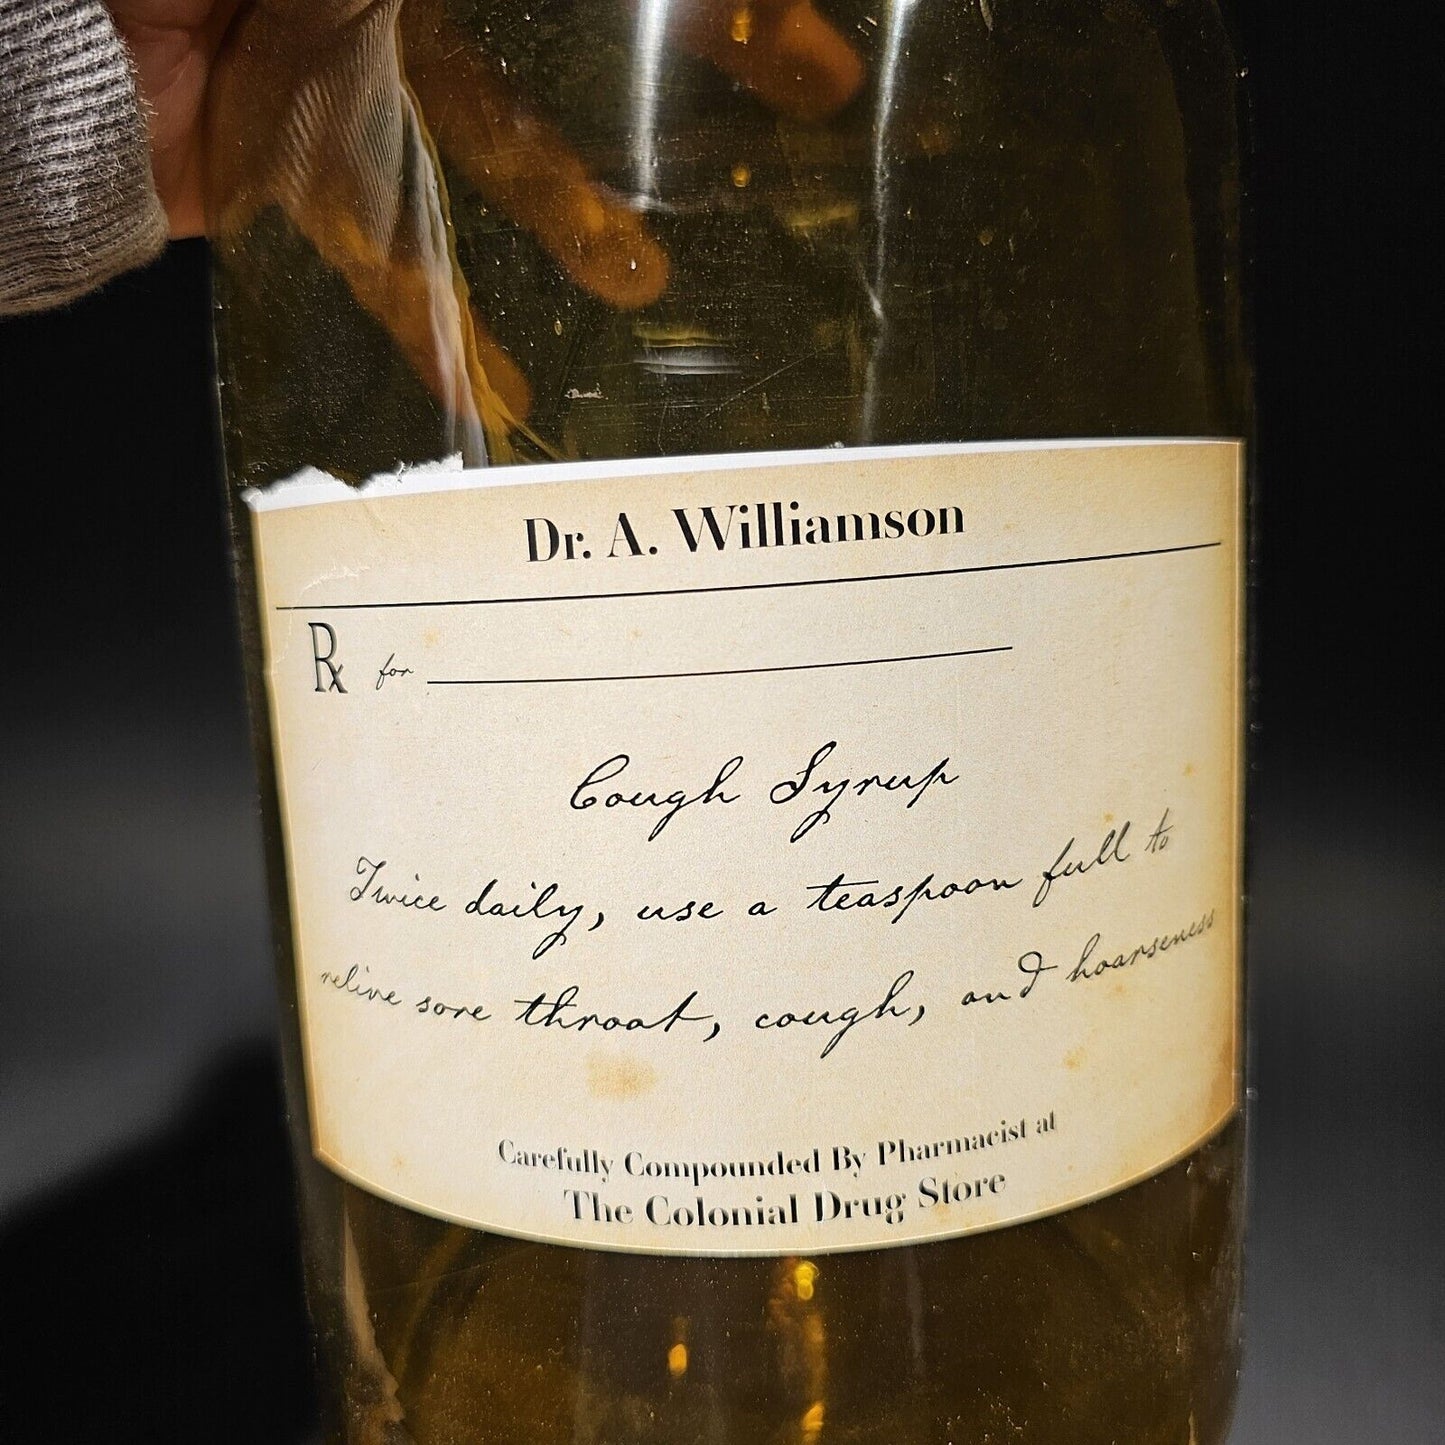 Dr. A. Williamson
Rx for
Cough Syrup
Twice daily, use a teaspoon full to
relive sore throat, cough, and hoarseness
Carefully Compounded By Pharmacist at
The Colonial Drug Store